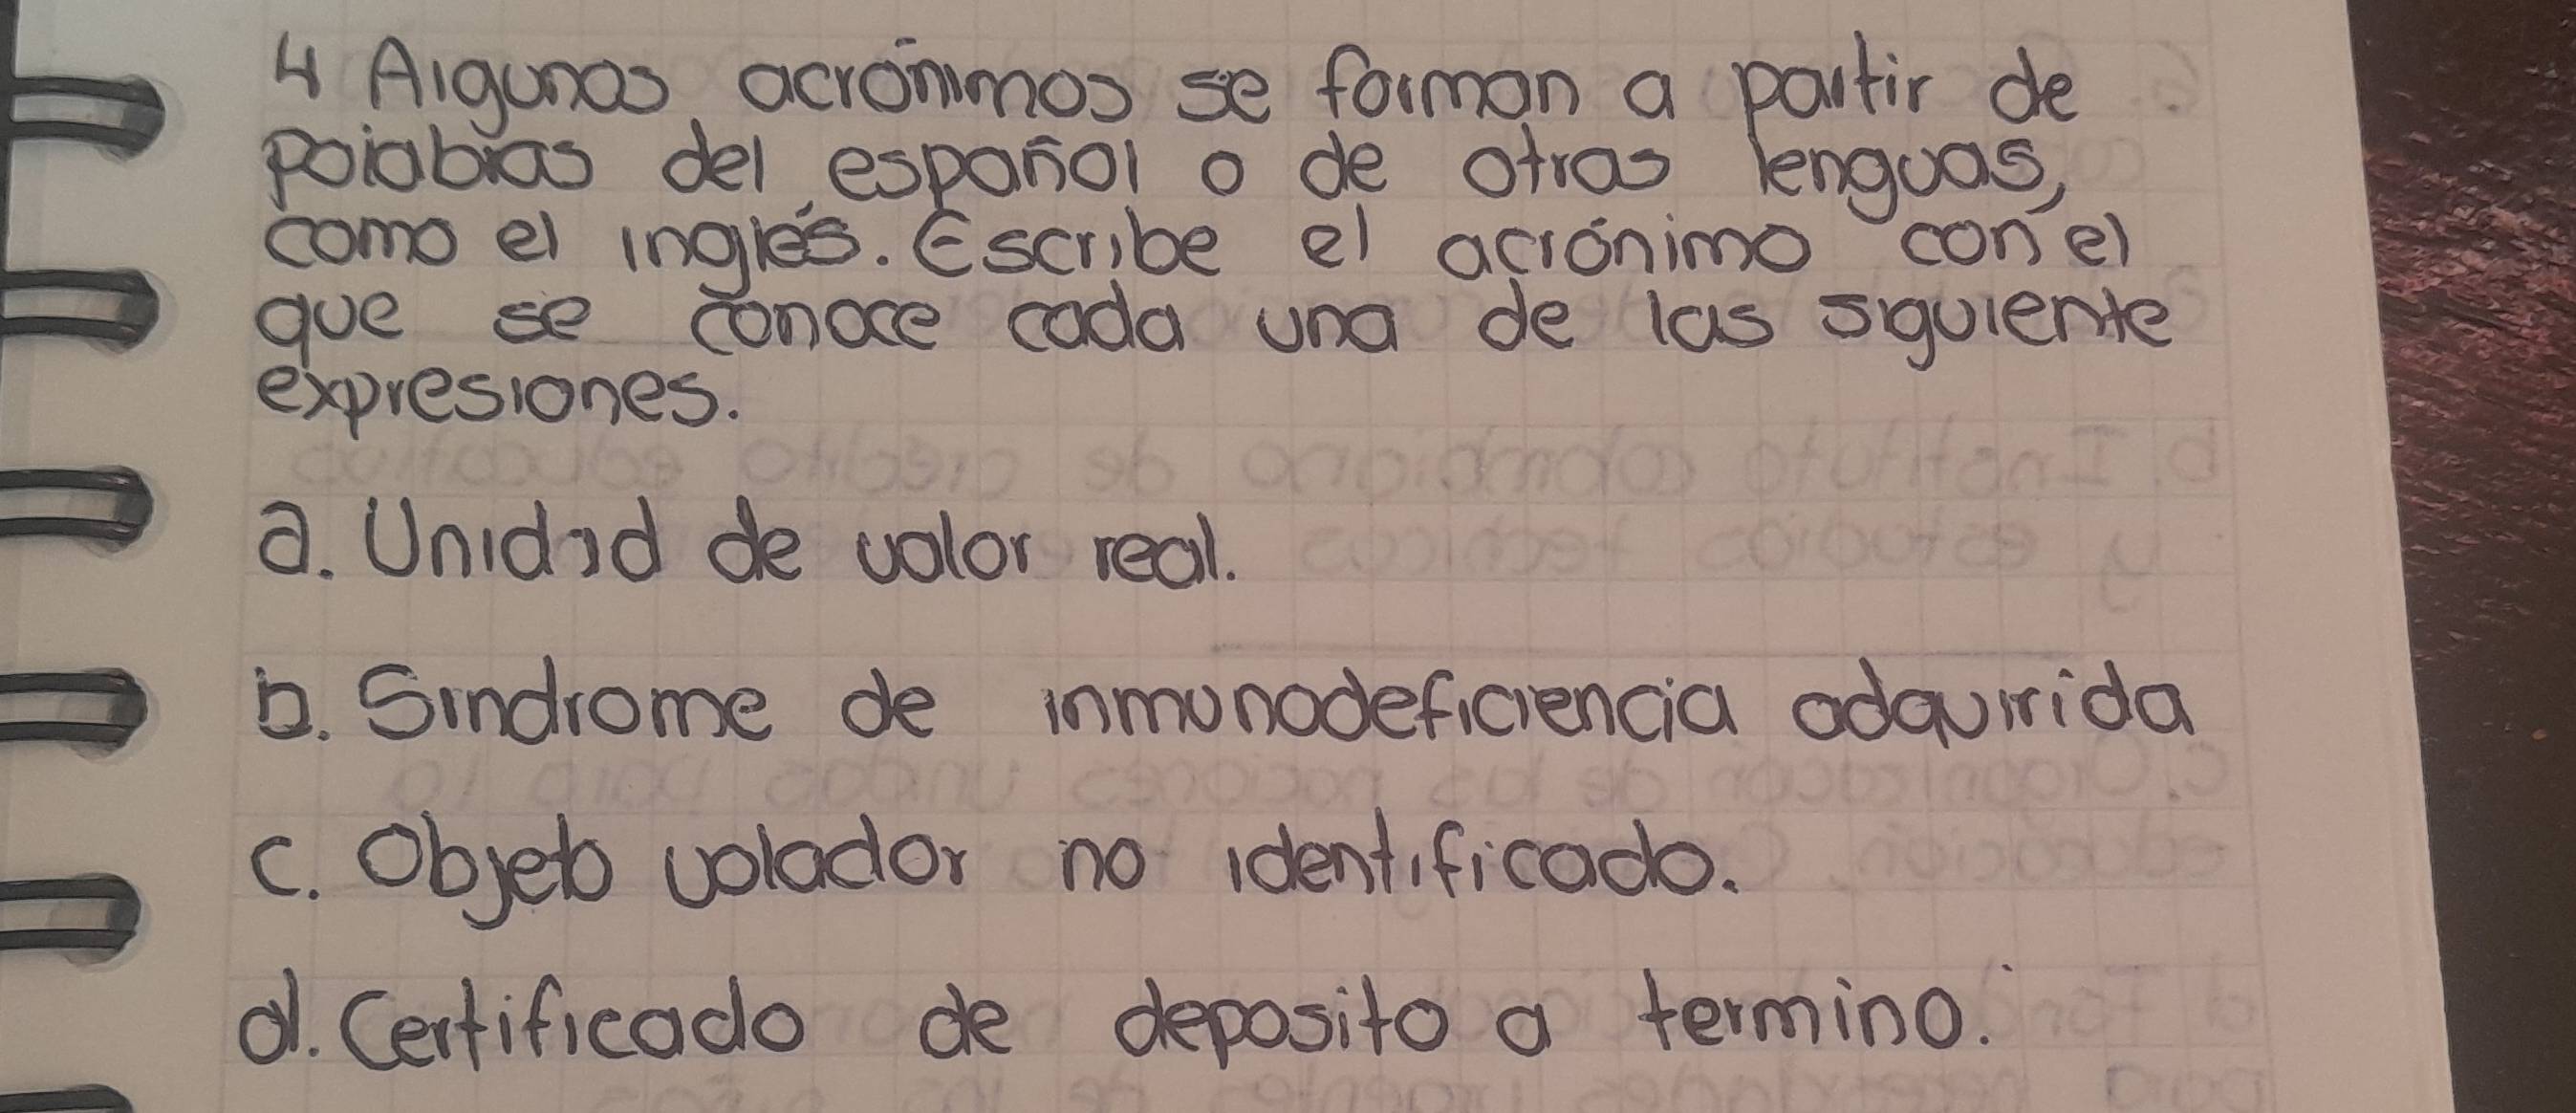 4 Algunos acrónimos se forman a partir de
palabras del español o de otras lenguas,
como el inglés. Escribe el acrónimo con el
que se conoce cada una de las siguiente
expresiones.
a. Unidad de valor real.
b. Sindrome de inmunodeficiencia adquirida
c. Objeto volador no identificado.
d. Certificado de deposito a termino.